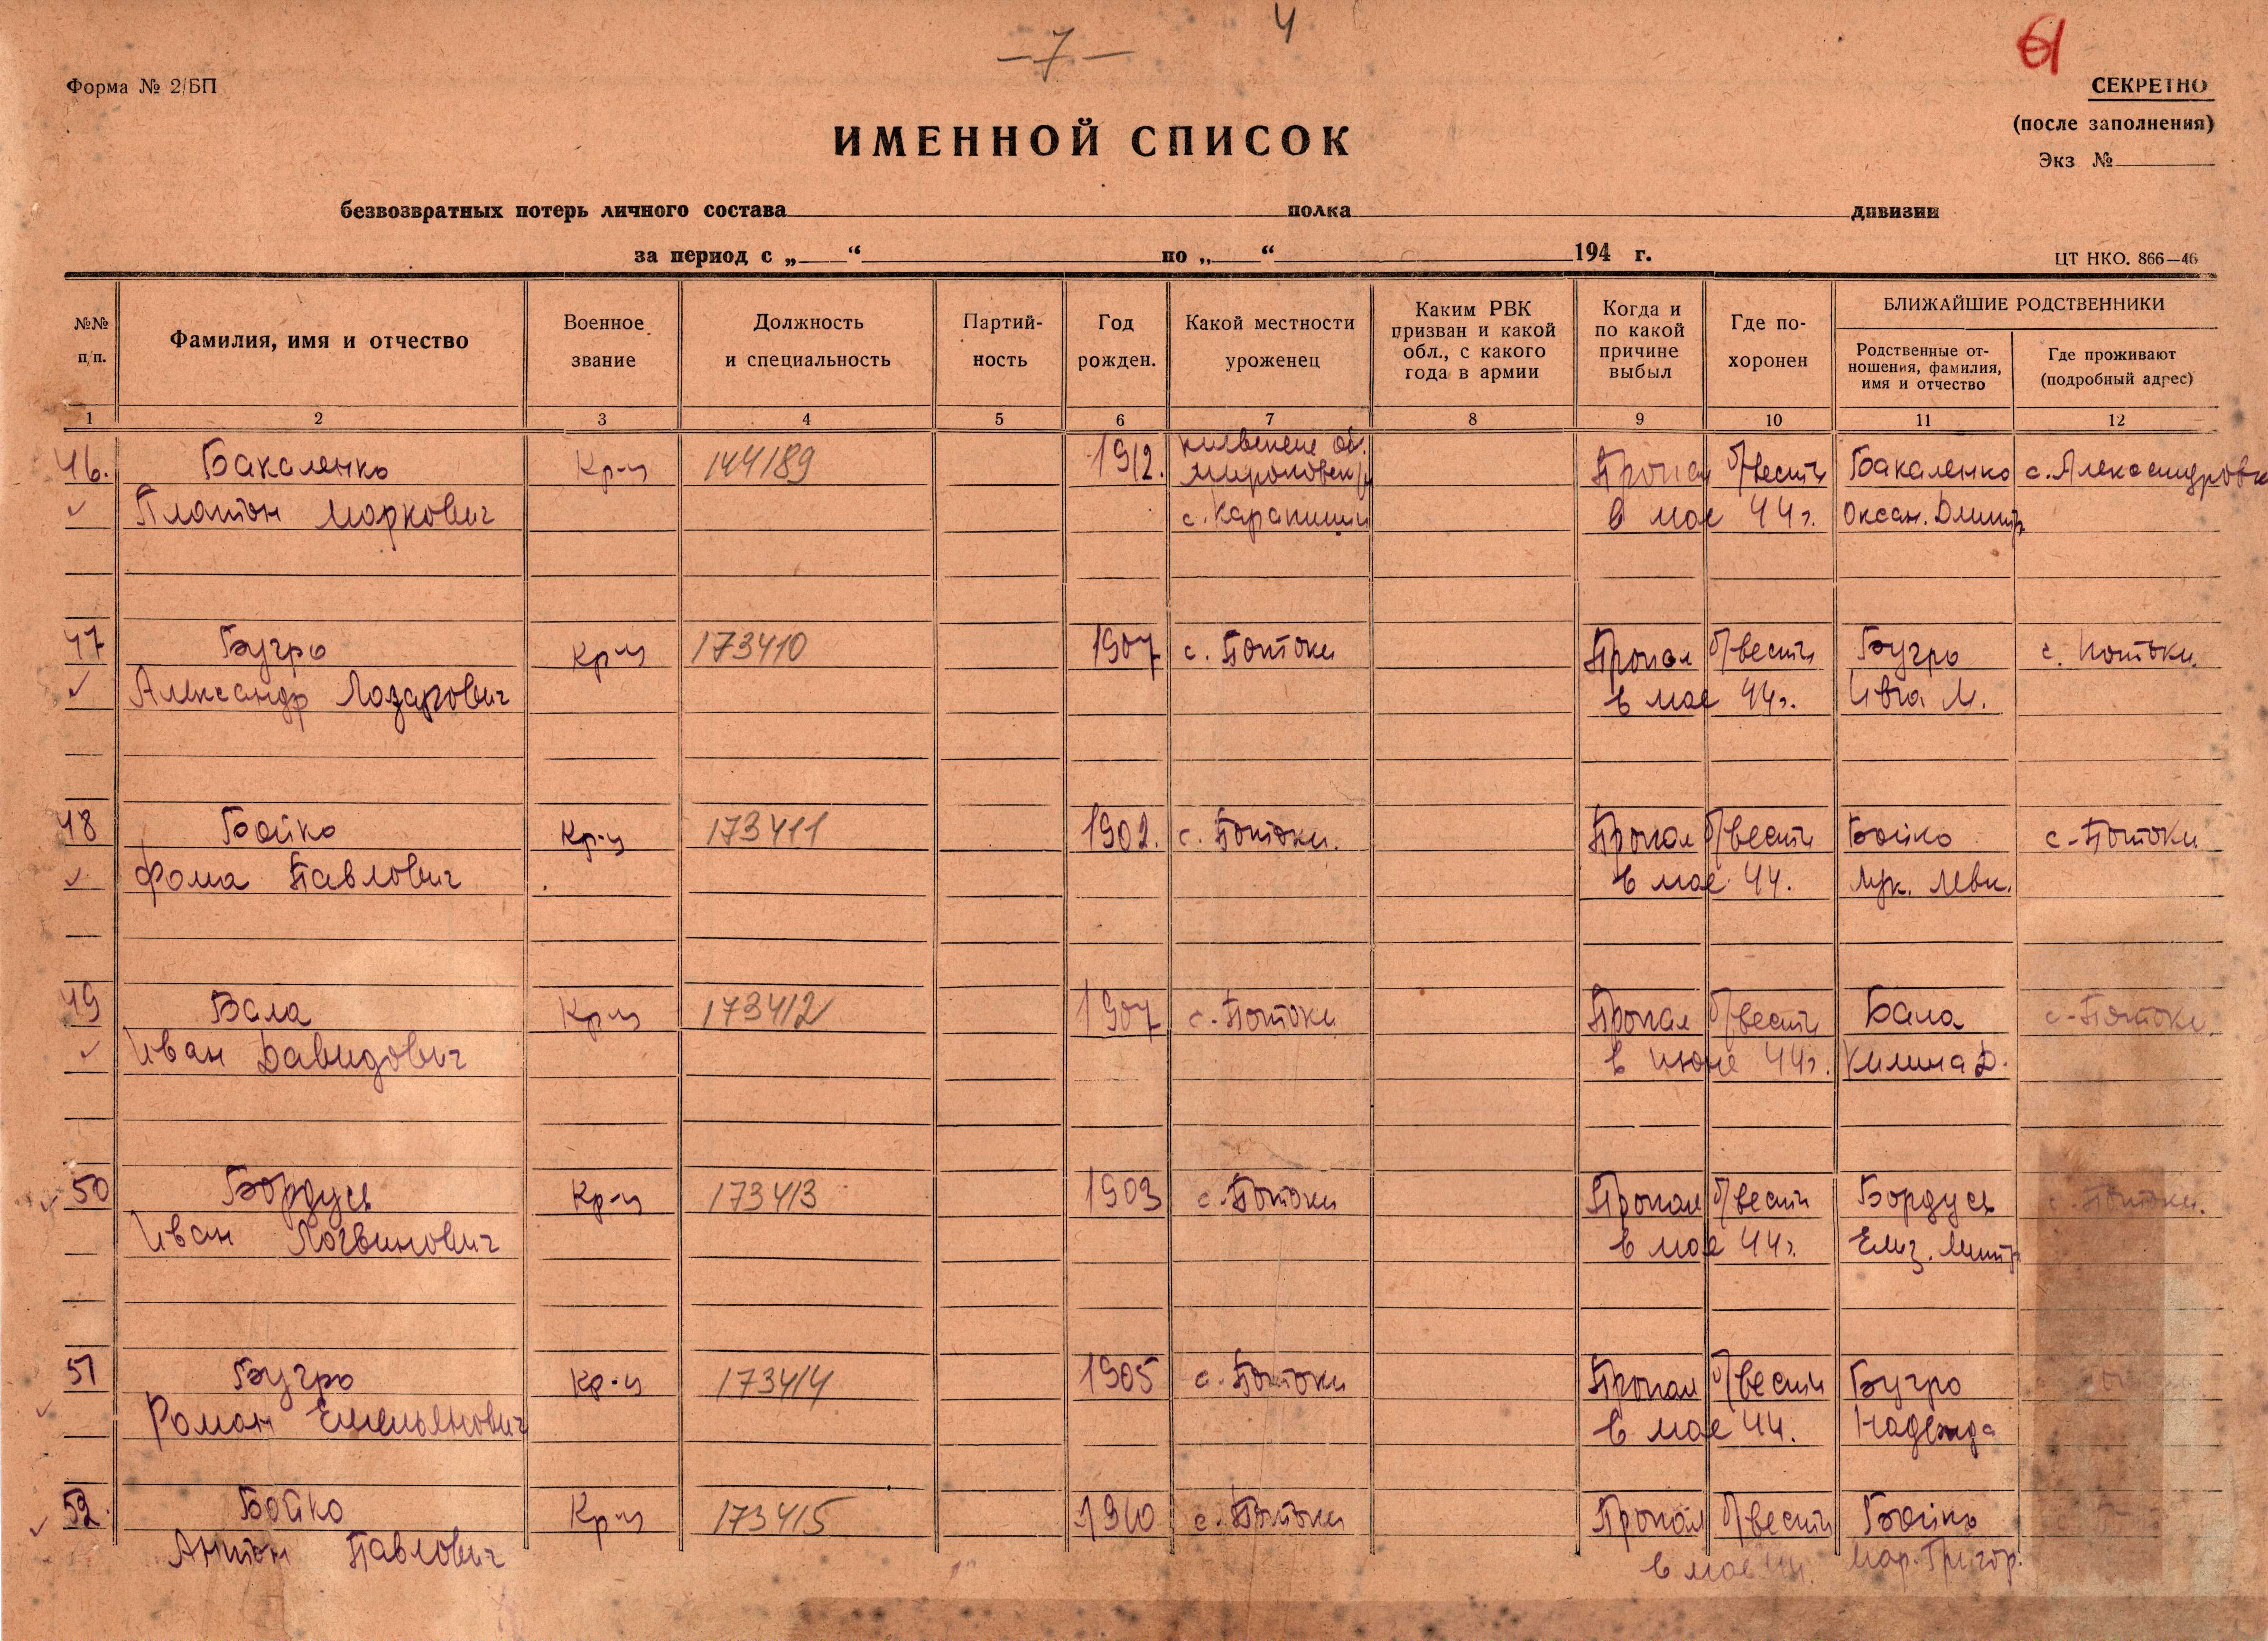 -7-
4
61
Форма № 2/БП
СЕКРЕТНО
(после заполнения)
Экз №
ИМЕННОЙ СПИСОК
безвозвратных потерь личного состава полка дивизии
за период с „ “ по „ “ 194 г.
ЦТ НКО. 866—46
№№ п/п.
Фамилия, имя и отчество
Военное звание
Должность и специальность
Партий-
ность
Год рожден.
Какой местности уроженец
Каким РВК
призван и какой
обл., с какого
года в армии
Когда и
по какой
причине
выбыл
Где по-
хоронен
БЛИЖАЙШИЕ РОДСТВЕННИКИ
Родственные от-
ношения, фамилия,
имя и отчество
Где проживают
(подробный адрес)
1 2 3 4 5 6 7 8 9 10 11 12
46. Бакаленко Кр-ц 144189 1912. Мироновск р Пропал б/вести Бакаленко с. Александровка
Платон Маркович с. Карапиши в мае 44г. Оксан. Дмитр
47 Бугро Кр-ц 173410 1907 с. Потоки Пропал б/вести Бугро с. Потоки.
Александр Лазарович в мае 44г. Ивга М.
48 Бойко Кр-ц 173411 1902. с. Потоки. Пропал б/вести Бойко с-Потоки
Фома Павлович в мае 44. Лук. Левк.
49 Бала Кр-ц 173412 1907 с-Потоки Пропал б/вести Бала с-Потоки.
Иван Давидович в июне 44г. Килина Д.
50 Бордусь Кр-ц 173413 1903 с. Потоки Пропал б/вести Бордусь с. Потоки.
Иван Логвинович в мае 44г. Елиз. Митр
51 Бугро Кр-ц 173414 1905 с. Потоки Пропал б/вести Бугро
Роман Емельянович в мае 44. Надежда
52. Бойко Кр-ц 173415 1910 с. Потоки Пропал б/вести Бойко
Антон Павлович в мае 44. Мар. Григор.